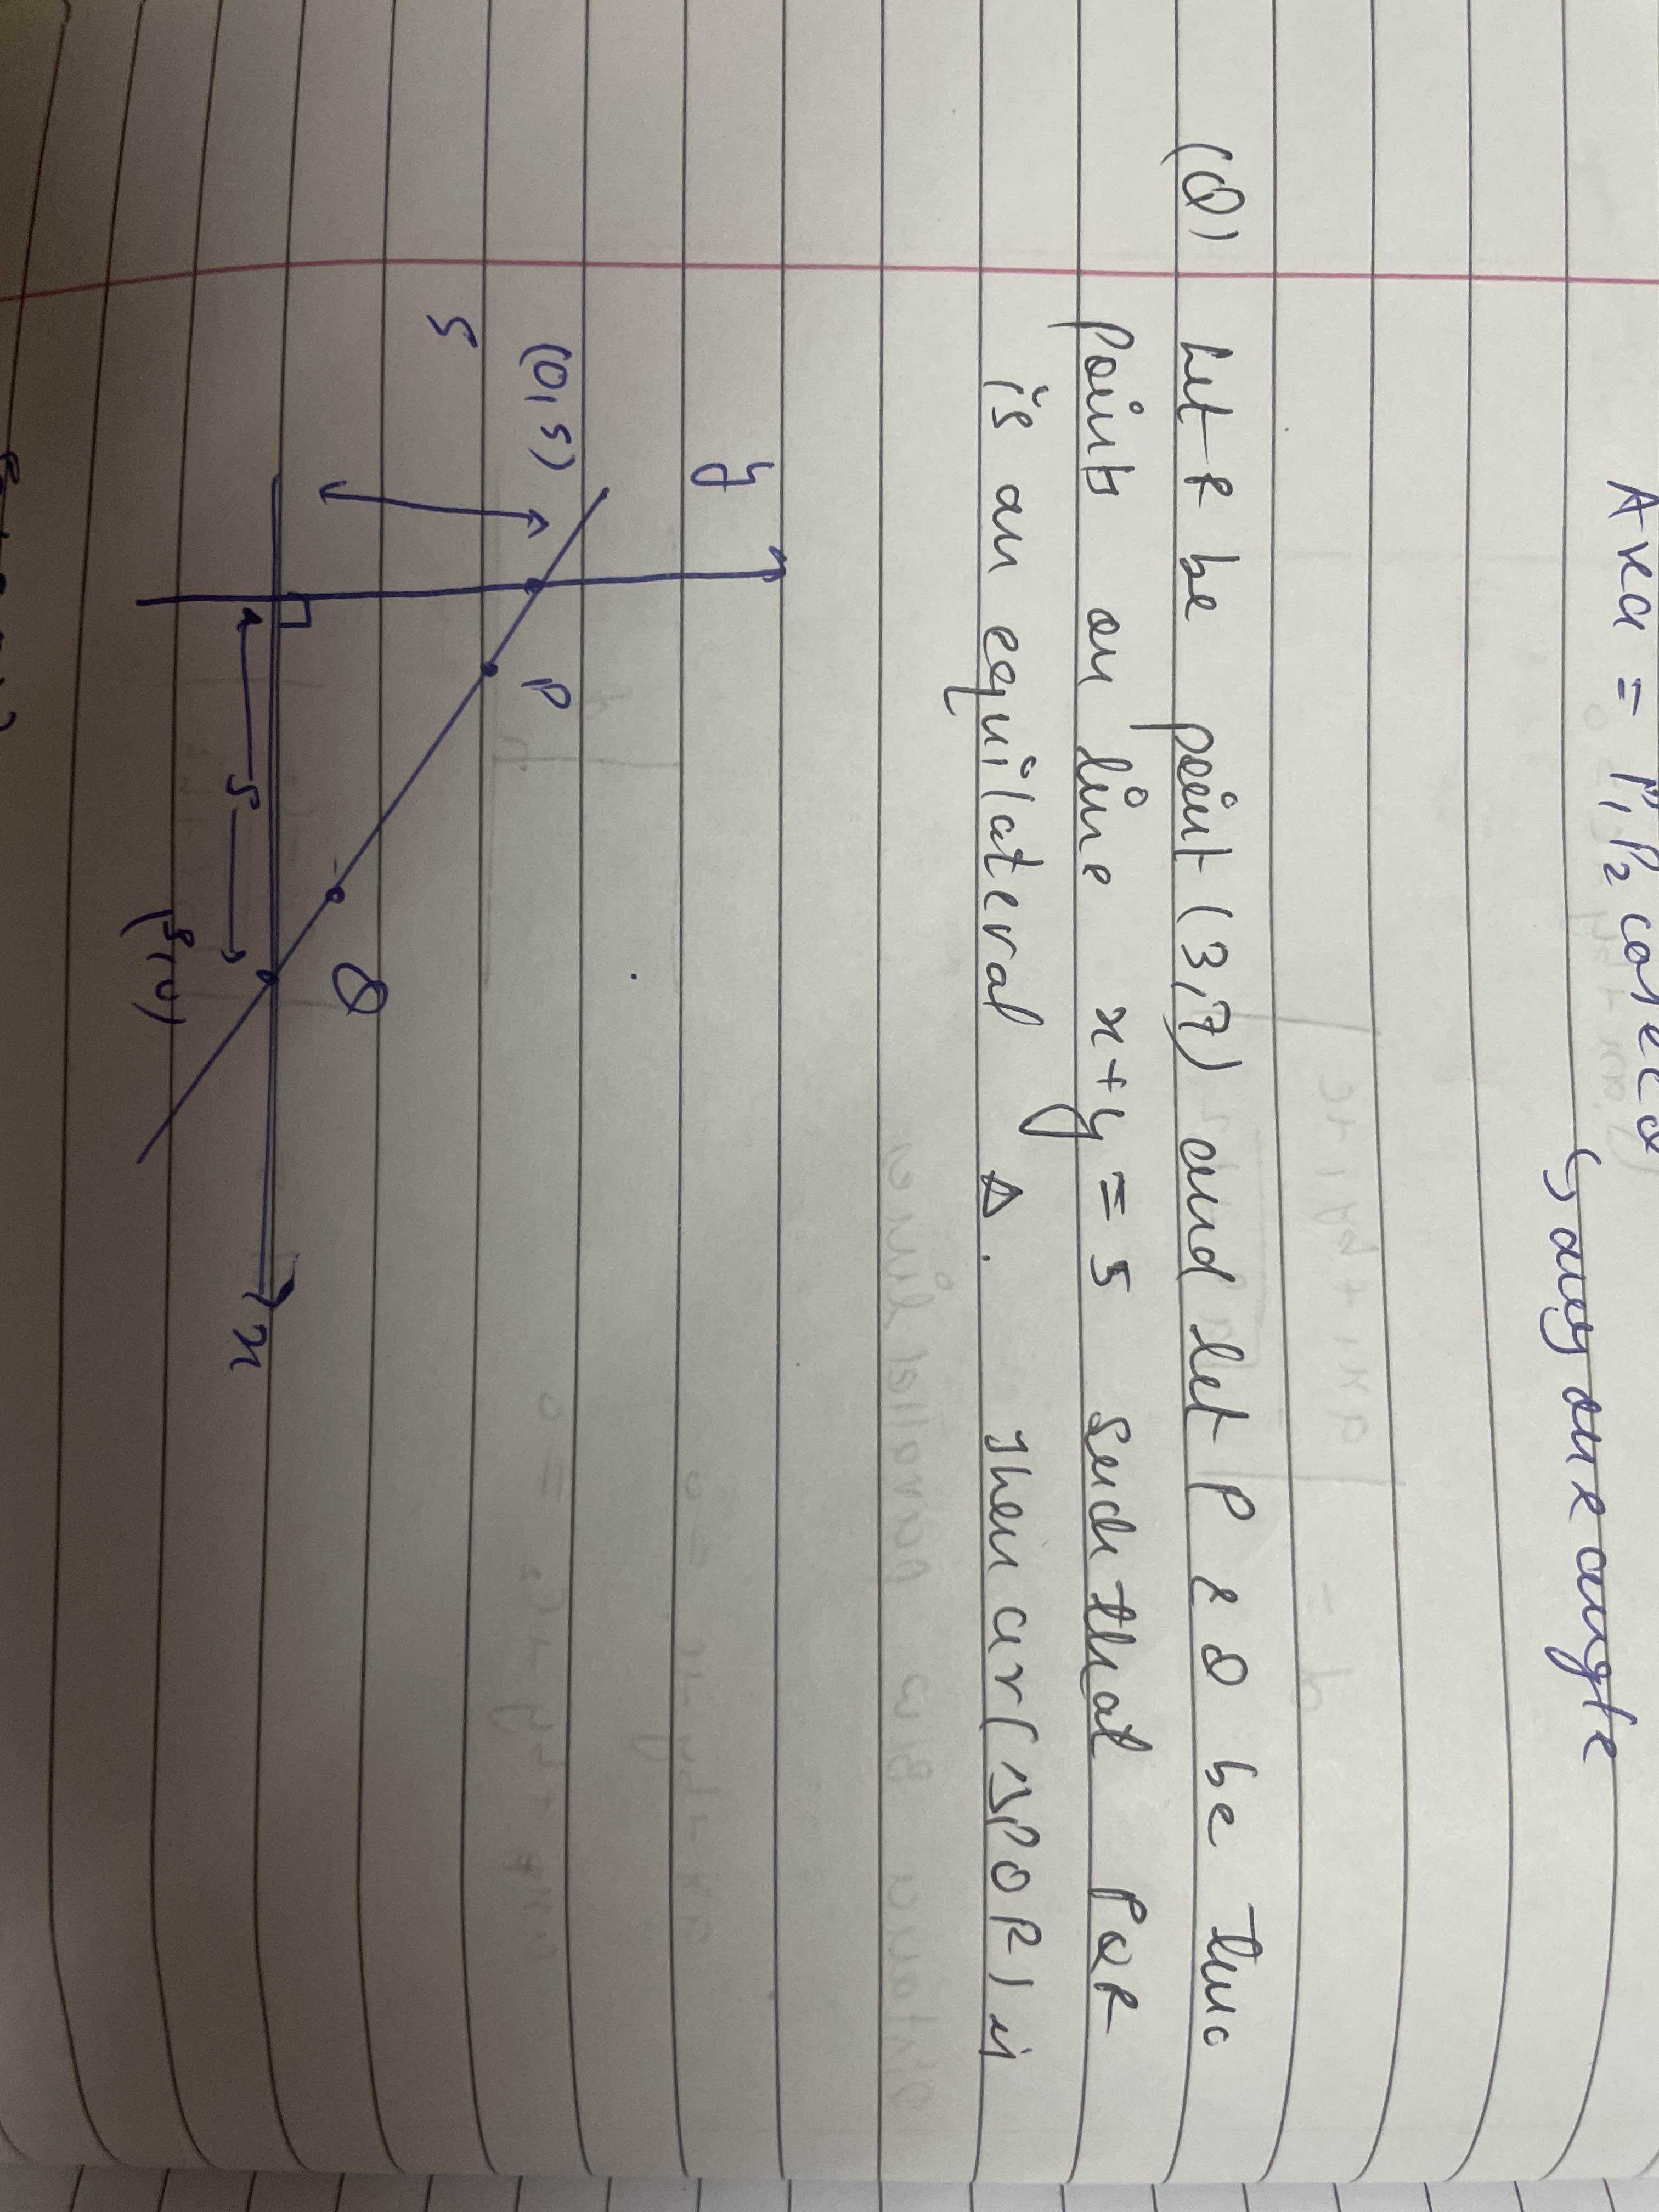 Area = P₁P₂ cosec α
↳ any one angle
(Q) Let R be point (3,7) and let P & Q be two
points on line x+y = 5 such that PQR
is an equilateral Δ. Then ar(ΔPQR) is
y
(0,5)
P
5
Q
5
x
(5,0)